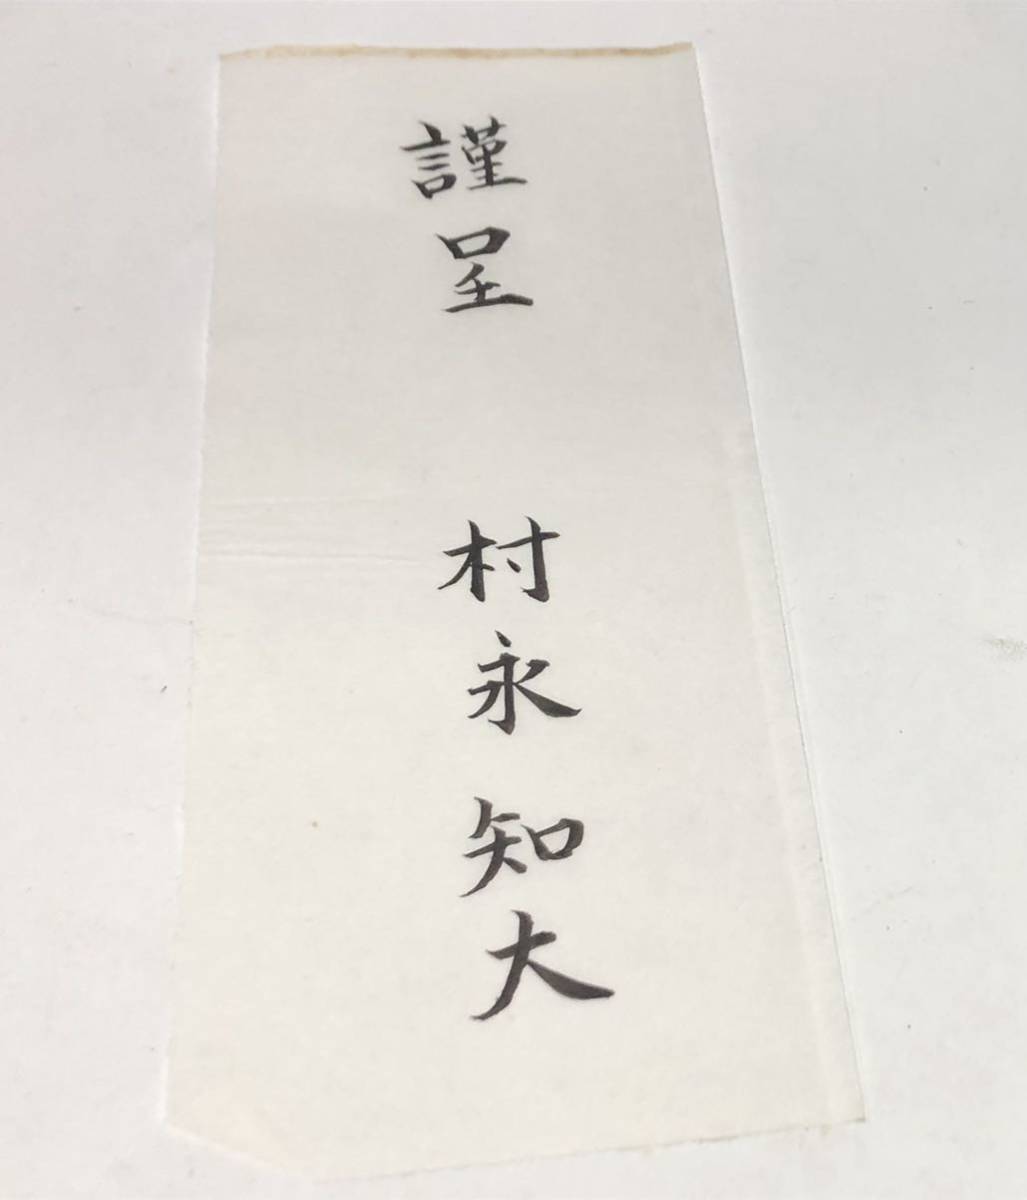 謹呈　村永知大